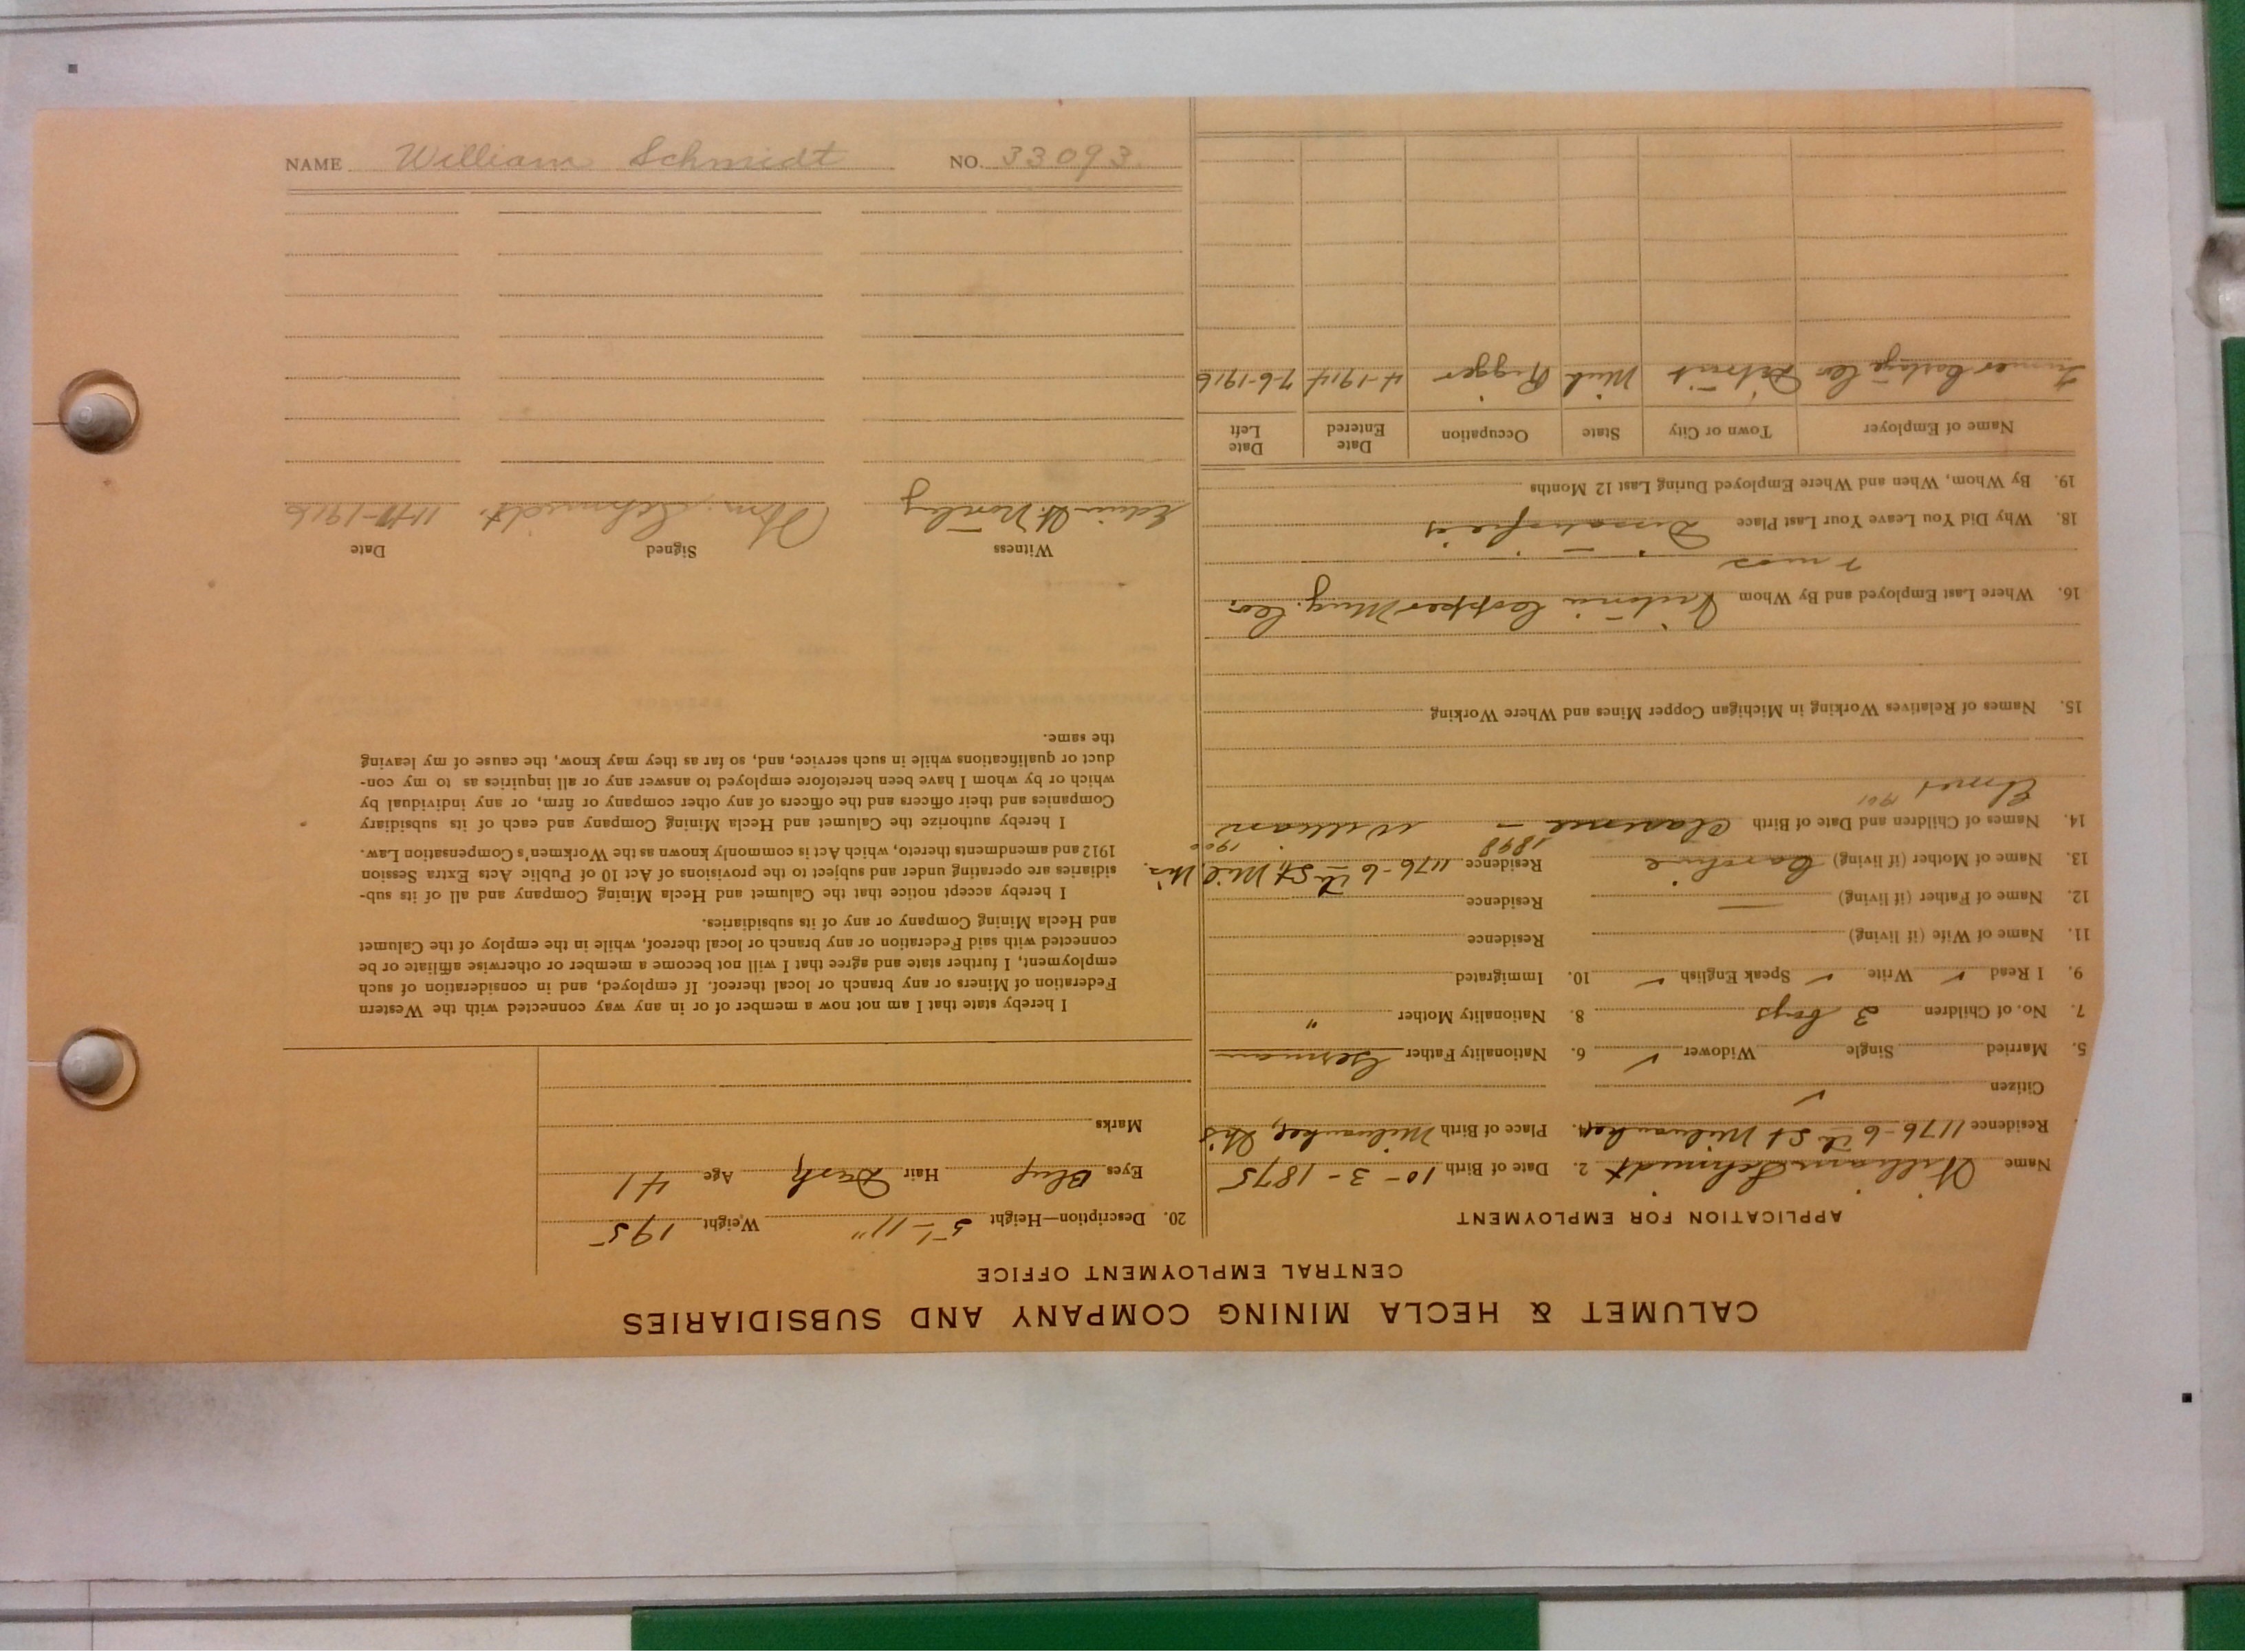 CALUMET & HECLA MINING COMPANY AND SUBSIDIARIES
CENTRAL EMPLOYMENT OFFICE
APPLICATION FOR EMPLOYMENT
Name William Schmidt 2. Date of Birth 10-3-1875
Residence 1176-6th St Milwaukee, 4. Place of Birth Milwaukee, Wis
Citizen ✓
5. Married Single Widower ✓ 6. Nationality Father German
7. No. of Children 3 boys 8. Nationality Mother "
9. I Read ✓ Write ✓ Speak English ✓ 10. Immigrated
11. Name of Wife (if living) Residence
12. Name of Father (if living) — Residence
13. Name of Mother (if living) Caroline Residence 1176-6th St, Mil, Wis.
14. Names of Children and Date of Birth Clarence - 1898 William 1900
Elmer 1901
15. Names of Relatives Working in Michigan Copper Mines and Where Working
16. Where Last Employed and By Whom Victoria Copper Mng. Co.
mos
18. Why Did You Leave Your Last Place Dissatisfied
19. By Whom, When and Where Employed During Last 12 Months
Name of Employer Town or City State Occupation Date Entered Date Left
Co Detroit Mich Rigger 4-1914 7-6-1916
20. Description—Height 5'-11" Weight 195
Eyes Blue Hair Dark Age 41
Marks
I hereby state that I am not now a member of or in any way connected with the Western
Federation of Miners or any branch or local thereof. If employed, and in consideration of such
employment, I further state and agree that I will not become a member or otherwise affiliate or be
connected with said Federation or any branch or local thereof, while in the employ of the Calumet
and Hecla Mining Company or any of its subsidiaries.
I hereby accept notice that the Calumet and Hecla Mining Company and all of its sub-
sidiaries are operating under and subject to the provisions of Act 10 of Public Acts Extra Session
1912 and amendments thereto, which Act is commonly known as the Workmen's Compensation Law.
I hereby authorize the Calumet and Hecla Mining Company and each of its subsidiary
Companies and their officers and the officers of any other company or firm, or any individual by
which or by whom I have been heretofore employed to answer any or all inquiries as to my con-
duct or qualifications while in such service, and, so far as they may know, the cause of my leaving
the same.
Witness Signed Date
Edwin Wm. Schmidt. 1916
NAME William Schmidt NO. 33093